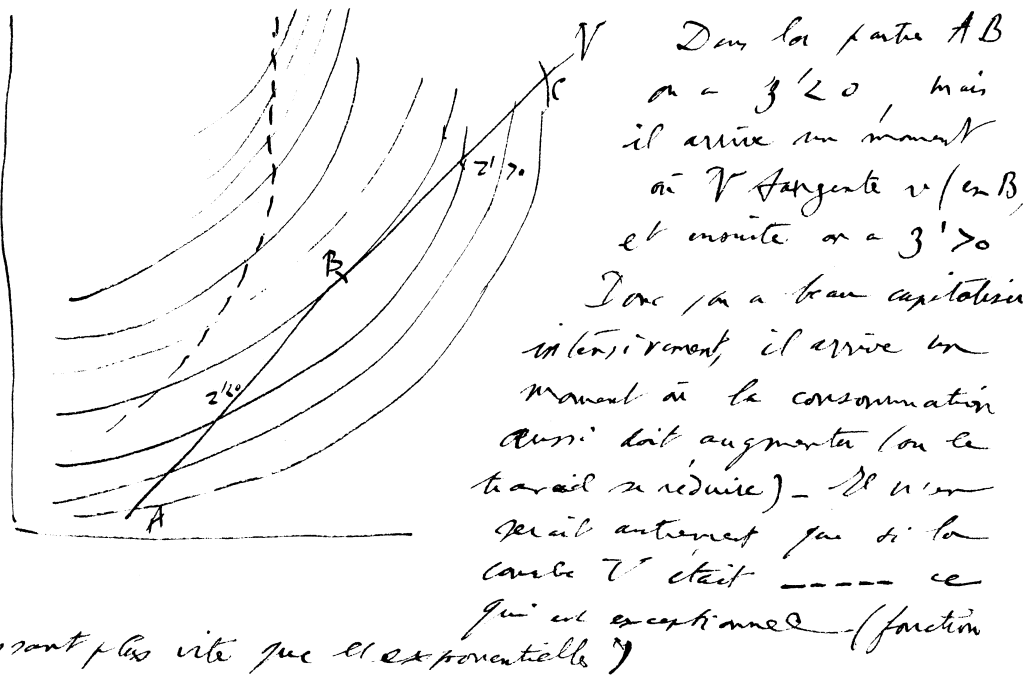 V
C
z' > 0
B
z' < 0
A
Dans la partie AB
on a z' < 0, mais
il arrive un moment
où V tangente v (en B,
et ensuite on a z' > 0
Donc, on a beau capitaliser
intensivement, il arrive un
moment où la consommation
aussi doit augmenter (ou le
travail se réduire) – Il n'en
serait autrement que si la
courbe V était ----- ce
qui est exceptionnel – (fonction
ssant plus vite que exponentielle)